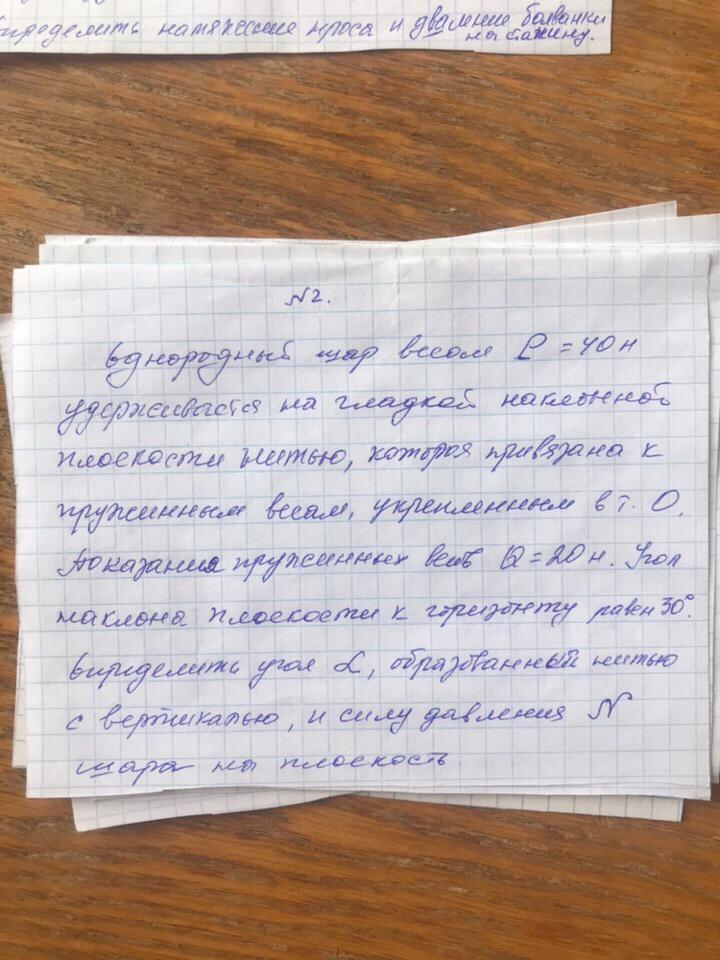 определить натяжение троса и давление болванки
на станину.
N2.
Однородный шар весом P = 40н
удерживается на гладкой наклонной
плоскости нитью, которая привязана к
пружинным весам, укрепленным в т. О.
Показания пружинных весов Q = 20н. Угол
наклона плоскости к горизонту равен 30°.
Определить угол α, образованный нитью
с вертикалью, и силу давления N
шара на плоскость.